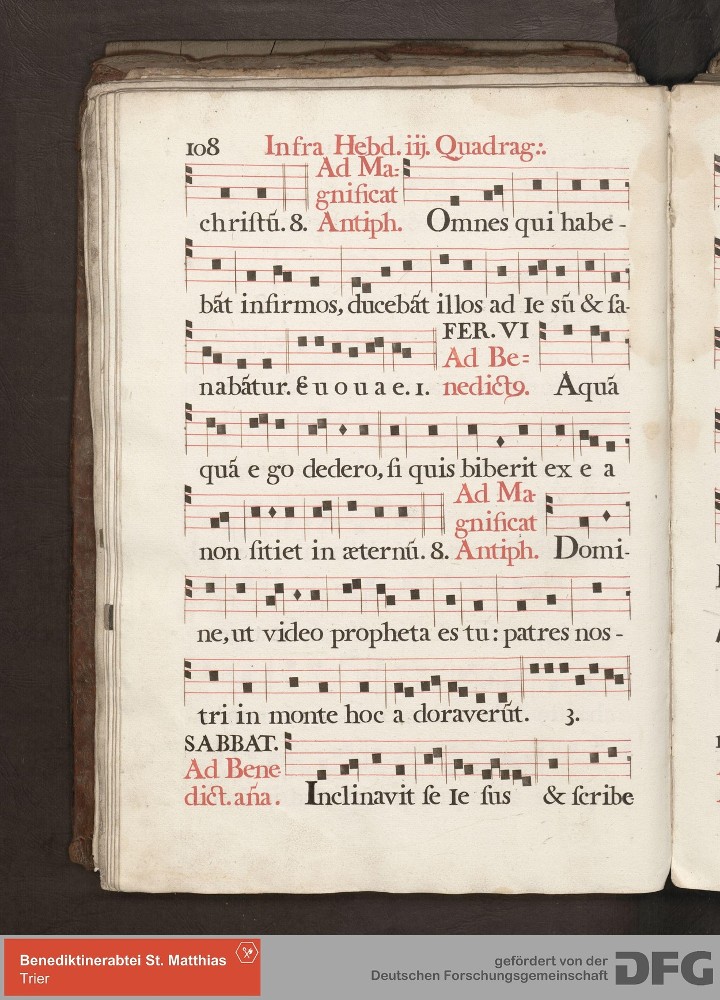 108 Infra Hebd. iij. Quadrag:.
Ad Ma=
gnificat
chriſtũ. 8. Antiph. Omnes qui habe -
bãt infirmos, ducebãt illos ad Ie sũ & ſa-
FER. VI
Ad Be=
nabãtur. E u o u a e. 1. nedictꝰ. Aquã
quã e go dedero, ſi quis biberit ex e a
Ad Ma-
gnificat
non ſitiet in æternũ. 8. Antiph. Domi-
ne, ut video propheta es tu: patres nos -
tri in monte hoc a doraverũt. 3.
SABBAT.
Ad Bene
dict. aña. Inclinavit ſe Ie ſus & ſcribe
Benediktinerabtei St. Matthias
Trier
gefördert von der
Deutschen Forschungsgemeinschaft
DFG